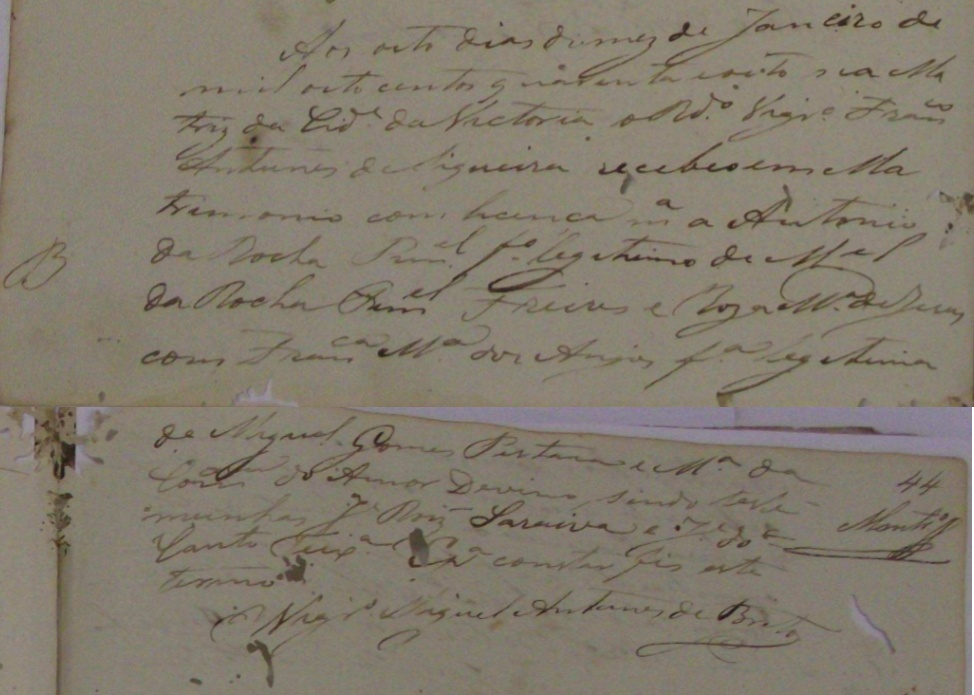 Aos oito dias do mez de Janeiro de
mil oito centos quarenta e oito na Ma
triz da Cid.e da Victoria o Rd.o Vigr.o Fran.co
Antunes de Siqueira recebeo em Ma
trimonio com licença m.a a Antonio
da Rocha Pim.el f.o legitimo de M.el
da Rocha Pim.el Freires e Roza M.a de Jesus
com Fran.ca M.a dos Anjos f.a legitima
B
de Miguel Gomes Pestana e M.a da
do Amor Devino, sendo teste
munhas J.e Roiz Saraiva e J.e do
Canto Teix.a E p.a constar fis este
termo
O Vigr.o Miguel Antunes de Brito
44